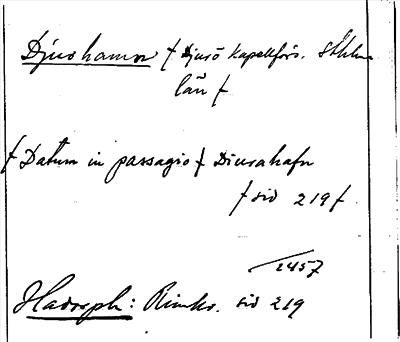 Djurhamn / Djurö kapellförs. Sthlms
län /
/ Datum in passagio / Diurahafn
/ sid 219 /.
1457
Hadorph: Rimkr. sid 219